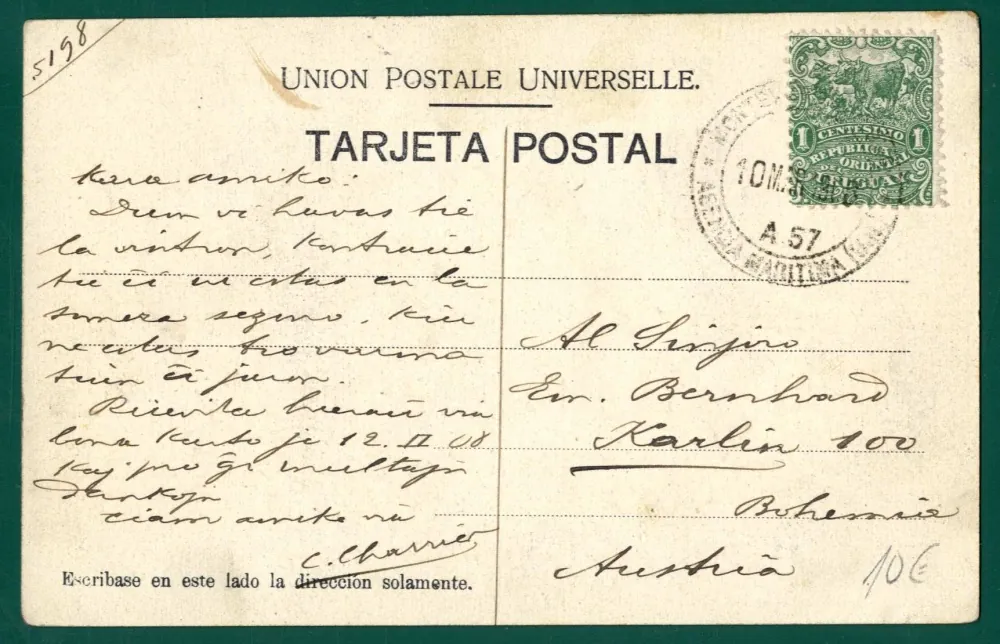 5198
UNION POSTALE UNIVERSELLE.
TARJETA POSTAL
Kara amiko:
Dum vi havas tie
la vintron, kontraue
tie ĉi ni estas en la
somera sezono, kiu
ne estas tro varma
tiun ĉi jaron.
Ricevita hieraŭ via
bona karto je 12. II 08
kaj pro ĝi multajn
dankojn
ciam amike via
C. Charrier
Escribase en este lado la dirección solamente.
1 CENTESIMO 1
REPUBLICA
ORIENTAL
URUGUAY
AGENCIA MARITIMA
A. 57
Al Sinjoro
Em. Bernhard
Karlin 100
Bohemia
Austria
10€